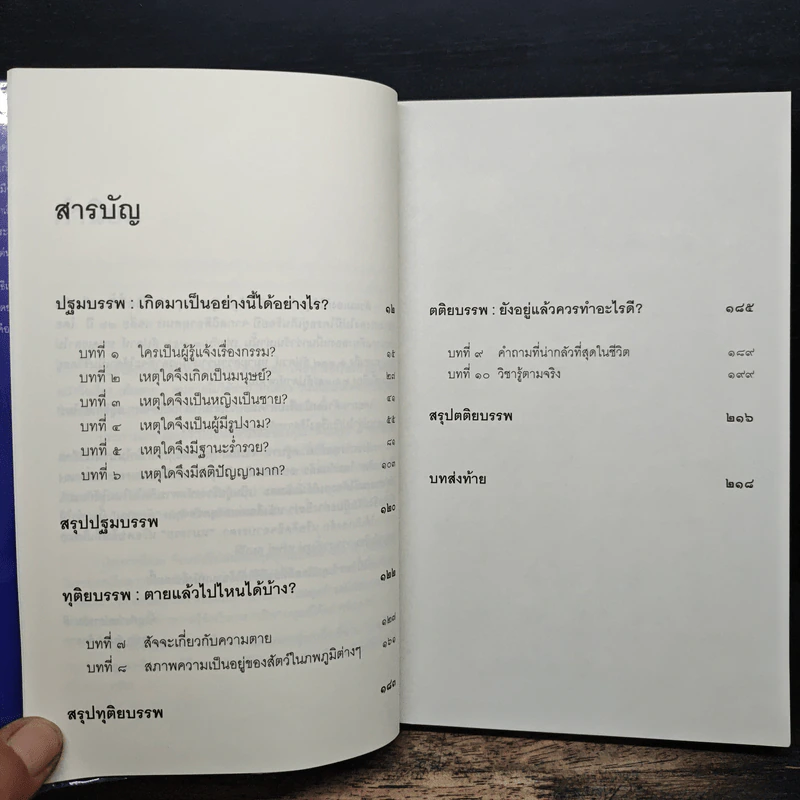 สารบัญ
ปฐมบรรพ : เกิดมาเป็นอย่างนี้ได้อย่างไร? ๑๒
บทที่ ๑ ใครเป็นผู้รู้แจ้งเรื่องกรรม? ๑๕
บทที่ ๒ เหตุใดจึงเกิดเป็นมนุษย์? ๒๘
บทที่ ๓ เหตุใดจึงเป็นหญิงเป็นชาย? ๔๑
บทที่ ๔ เหตุใดจึงเป็นผู้มีรูปงาม? ๕๕
บทที่ ๕ เหตุใดจึงมีฐานะร่ำรวย? ๘๑
บทที่ ๖ เหตุใดจึงมีสติปัญญามาก? ๑๐๓
สรุปปฐมบรรพ ๑๒๐
ทุติยบรรพ : ตายแล้วไปไหนได้บ้าง? ๑๒๒
บทที่ ๗ สัจจะเกี่ยวกับความตาย ๑๒๘
บทที่ ๘ สภาพความเป็นอยู่ของสัตว์ในภพภูมิต่างๆ ๑๖๑
สรุปทุติยบรรพ ๑๘๓
ตติยบรรพ : ยังอยู่แล้วควรทำอะไรดี? ๑๘๕
บทที่ ๙ คำถามที่น่ากลัวที่สุดในชีวิต ๑๘๙
บทที่ ๑๐ วิชารู้ตามจริง ๑๙๙
สรุปตติยบรรพ ๒๑๖
บทส่งท้าย ๒๑๘